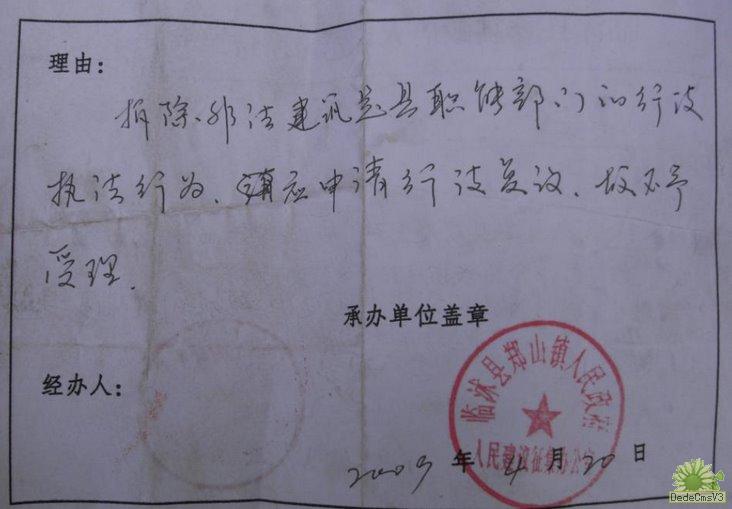 理由：
拆除非法建筑是县职能部门的行政
执法行为、应申请行政复议、故不予
受理.
承办单位盖章
经办人：
临沭县郑山镇人民政府
人民建议征集办公室
2009 年 4 月 20 日
DedeCmsV3